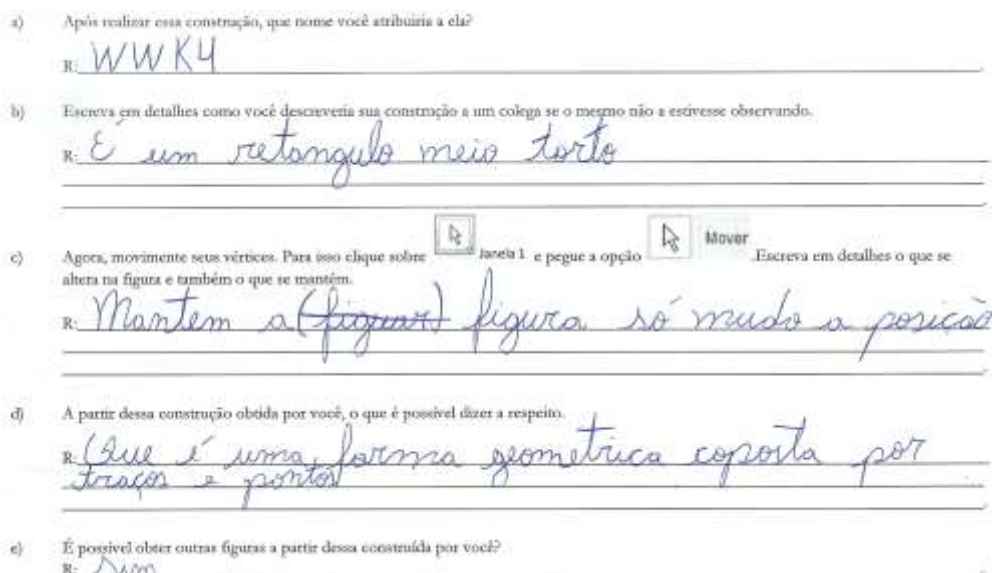 a) Após realizar essa construção, que nome você atribuiria a ela?
R: WWK4
b) Escreva em detalhes como você descreveria sua construção a um colega se o mesmo não a estivesse observando.
R: É um retangulo meio torto
c) Agora, movimente seus vértices. Para isso clique sobre Janela 1 e pegue a opção Mover .Escreva em detalhes o que se
altera na figura e também o que se mantém.
R: Mantem a (figuar) figura só mudo a posição
d) A partir dessa construção obtida por você, o que é possível dizer a respeito.
R: Que é uma forma geometrica coposta por
traços e pontos
e) É possível obter outras figuras a partir dessa construída por você?
R: Sim